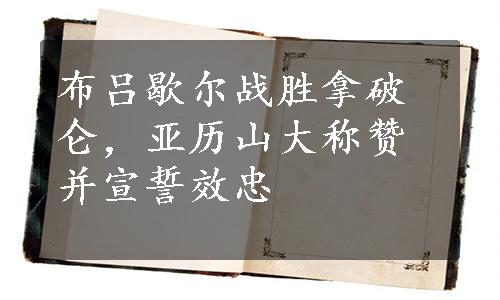 布吕歇尔战胜拿破
仑，亚历山大称赞
并宣誓效忠